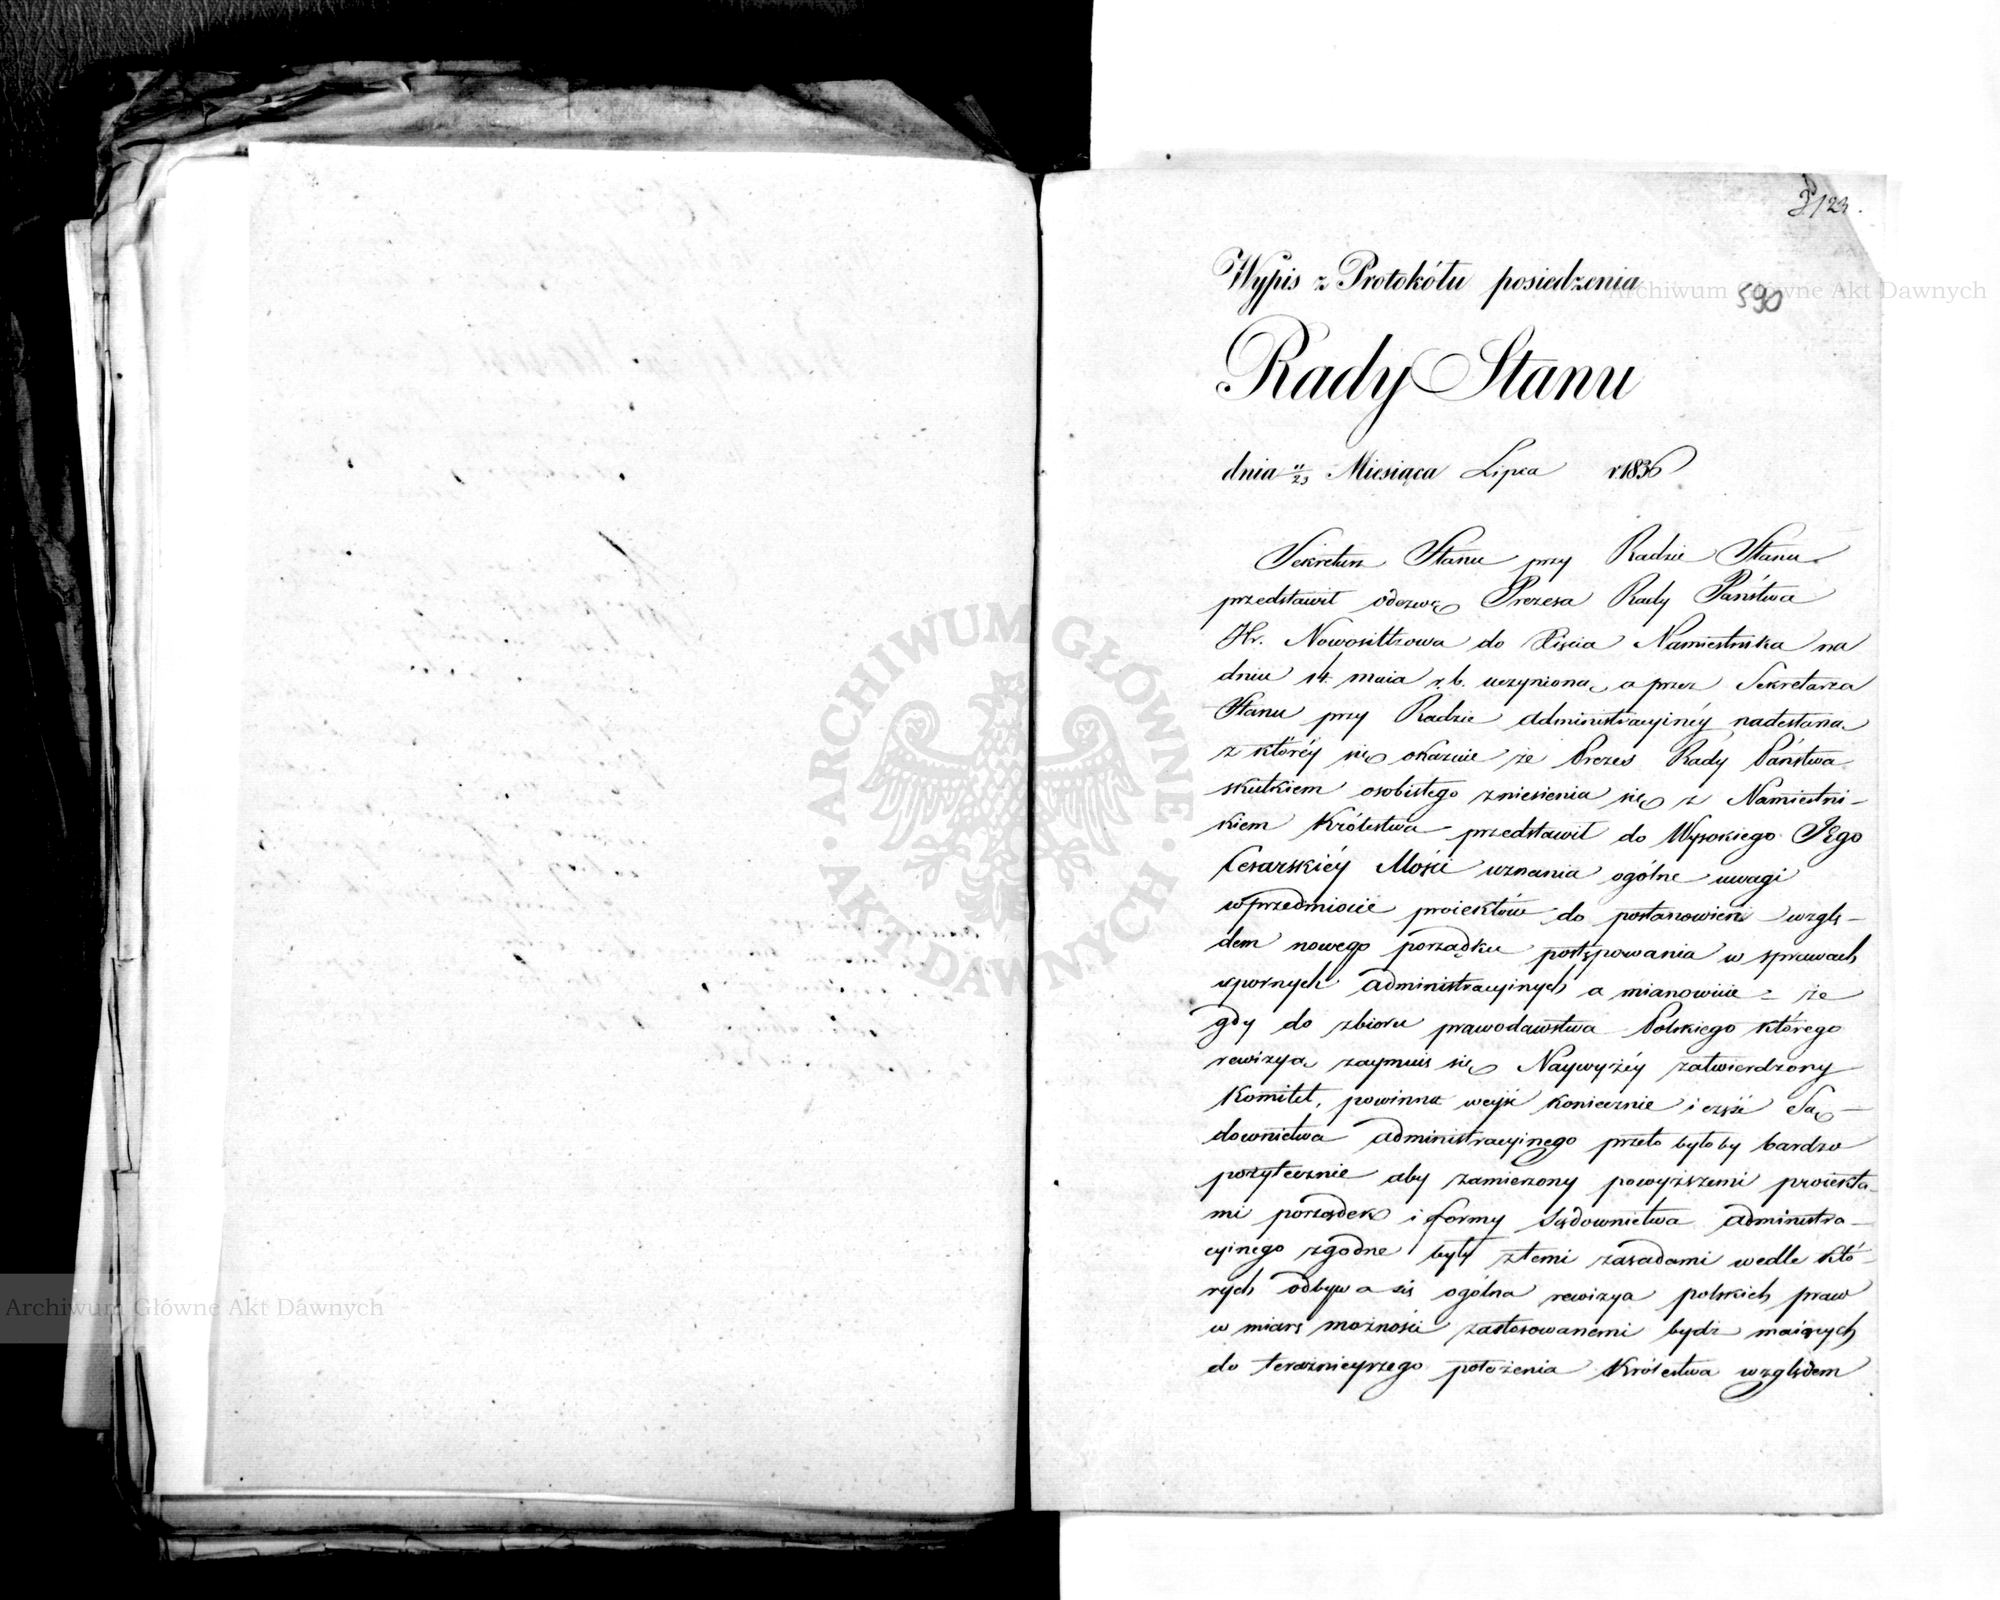 123.
Wypis z Protokółu posiedzenia
590
Rady Stanu
dnia 11/23 Miesiąca Lipca r. 1836
Sekretarz Stanu przy Radzie Stanu
przedstawił odezwę Prezesa Rady Państwa
Hr. Nowosiltzowa do Xięcia Namiestnika na
dniu 14. maia r. b. uczynioną, a przez Sekretarza
Stanu przy Radzie Administracyinéy nadesłaną
z któréy się okazuie że Prezes Rady Państwa
skutkiem osobistego zniesienia się z Namiestni-
kiem Królestwa przedstawił do Wysokiego JEgo
Cesarskiéy Mości uznania ogólne uwagi
w przedmiocie proiektów do postanowień wzglę-
dem nowego porządku postępowania w sprawach
spornych administracyinych a mianowicie = że
gdy do zbioru prawodawstwa Polskiego którego
rewizyą zaymuie się Naywyżéy zatwierdzony
Komitet, powinna weyść koniecznie i część Są-
downictwa administracyinego przeto byłoby bardzo
pożytecznie aby zamierzony powyższemi proiekta-
mi porządek i formy Sądownictwa administra-
cyinego zgodne były z temi zasadami wedle któ-
rych odbywa się ogólna rewizya polskich praw
w miarę możności zastosowanemi bydź maiących
do teraźnieyszego położenia Królestwa względem
Archiwum Główne Akt Dawnych
Archiwum Główne Akt Dawnych
ARCHIWUM GŁÓWNE · AKT DAWNYCH ·